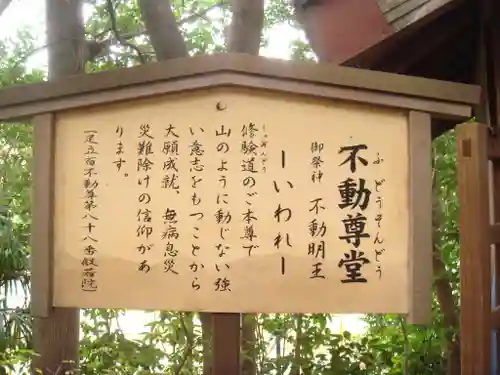 不動尊堂
ふどうそんどう
御祭神 不動明王
ーいわれー
修験道のご本尊で
しゅげんどう
山のように動じない強
い意志をもつことから
大願成就、無病息災
災難除けの信仰があ
ります。
不動尊第八十八番